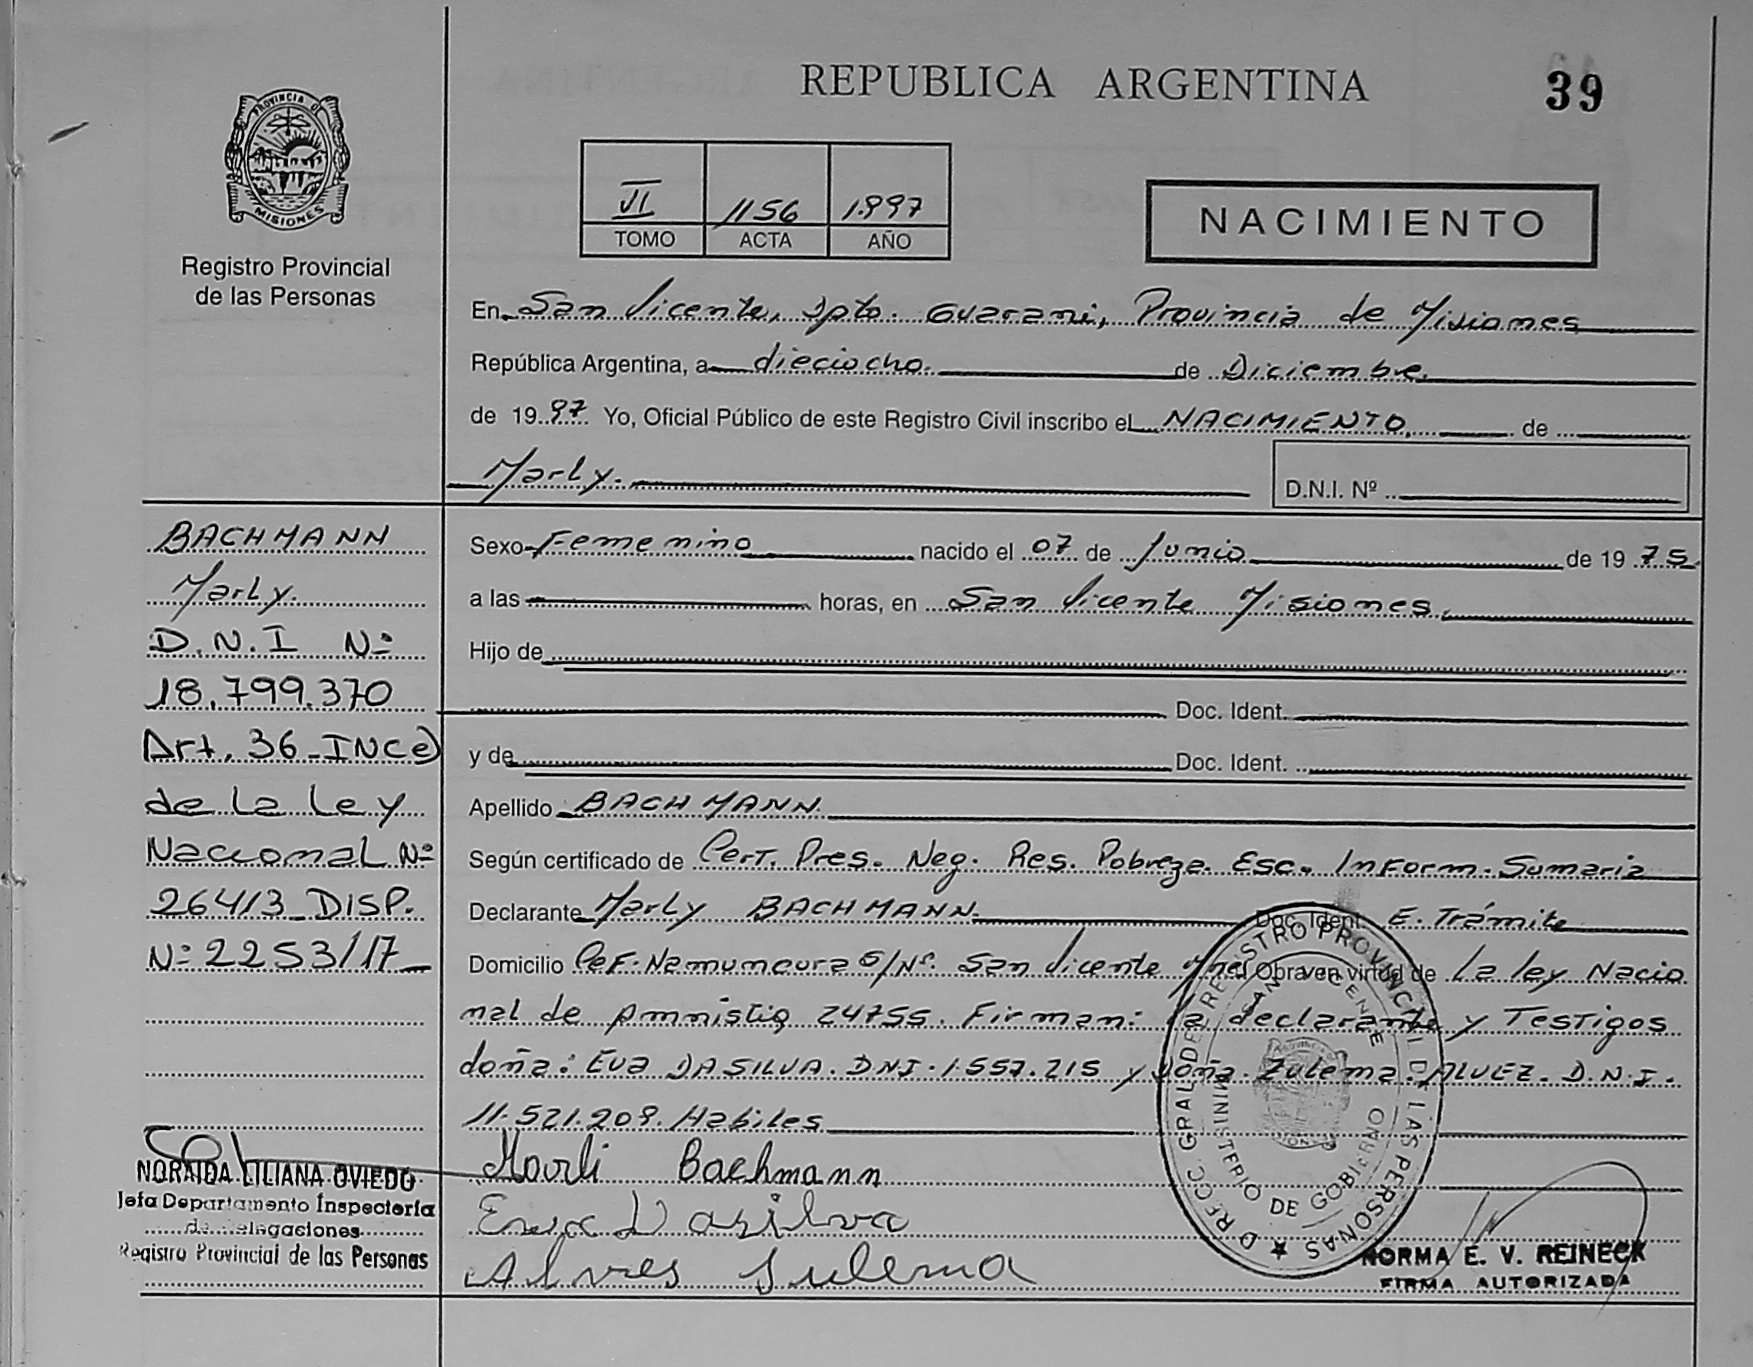 REPUBLICA ARGENTINA
39
PROVINCIA D
MISIONES
Registro Provincial
de las Personas
VI 1156 1.997
TOMO ACTA AÑO
NACIMIENTO
En San Vicente, Dpto. Guarani, Provincia de Misiones
República Argentina, a dieciocho. de Diciembre.
de 19 97 Yo, Oficial Público de este Registro Civil inscribo el NACIMIENTO. de
Marly.
D.N.I. Nº
BACHMANN
Marly.
D.N.I Nº
18.799.370
Art. 36 INC e)
de la Ley
Nacional Nº
26413 DISP.
Nº 2253/17
Sexo Femenino nacido el 07 de Junio de 19 75
a las horas, en San Vicente Misiones.
Hijo de
Doc. Ident.
y de Doc. Ident.
Apellido BACHMANN.
Según certificado de Cert. Pres. Neg. Res. Pobreza. Esc. Inform. Sumaria
Declarante Marly BACHMANN. Doc. Ident. E. Trámite
Domicilio Cef. Namuncura S/Nº. San Vicente Obra en virtud de La ley Nacio
nal de Amnistia 24755. Firman: la declarante y Testigos
doña: Eva DASILVA. DNI. 1.557.215 y doña. Zulema. ALVEZ. D.N.I.
11.521.209. Habiles
Marli Bachmann
Eva Dasilva
Alves Sulema
NORAIDA LILIANA OVIEDO
Jefa Departamento Inspectoría
de Delegaciones
Registro Provincial de las Personas
DIRECC. GRAL. DE REGISTRO PROVINCIAL DE LAS PERSONAS
MINISTERIO DE GOBIERNO
SAN VICENTE
NORMA E. V. REINECK
FIRMA AUTORIZADA